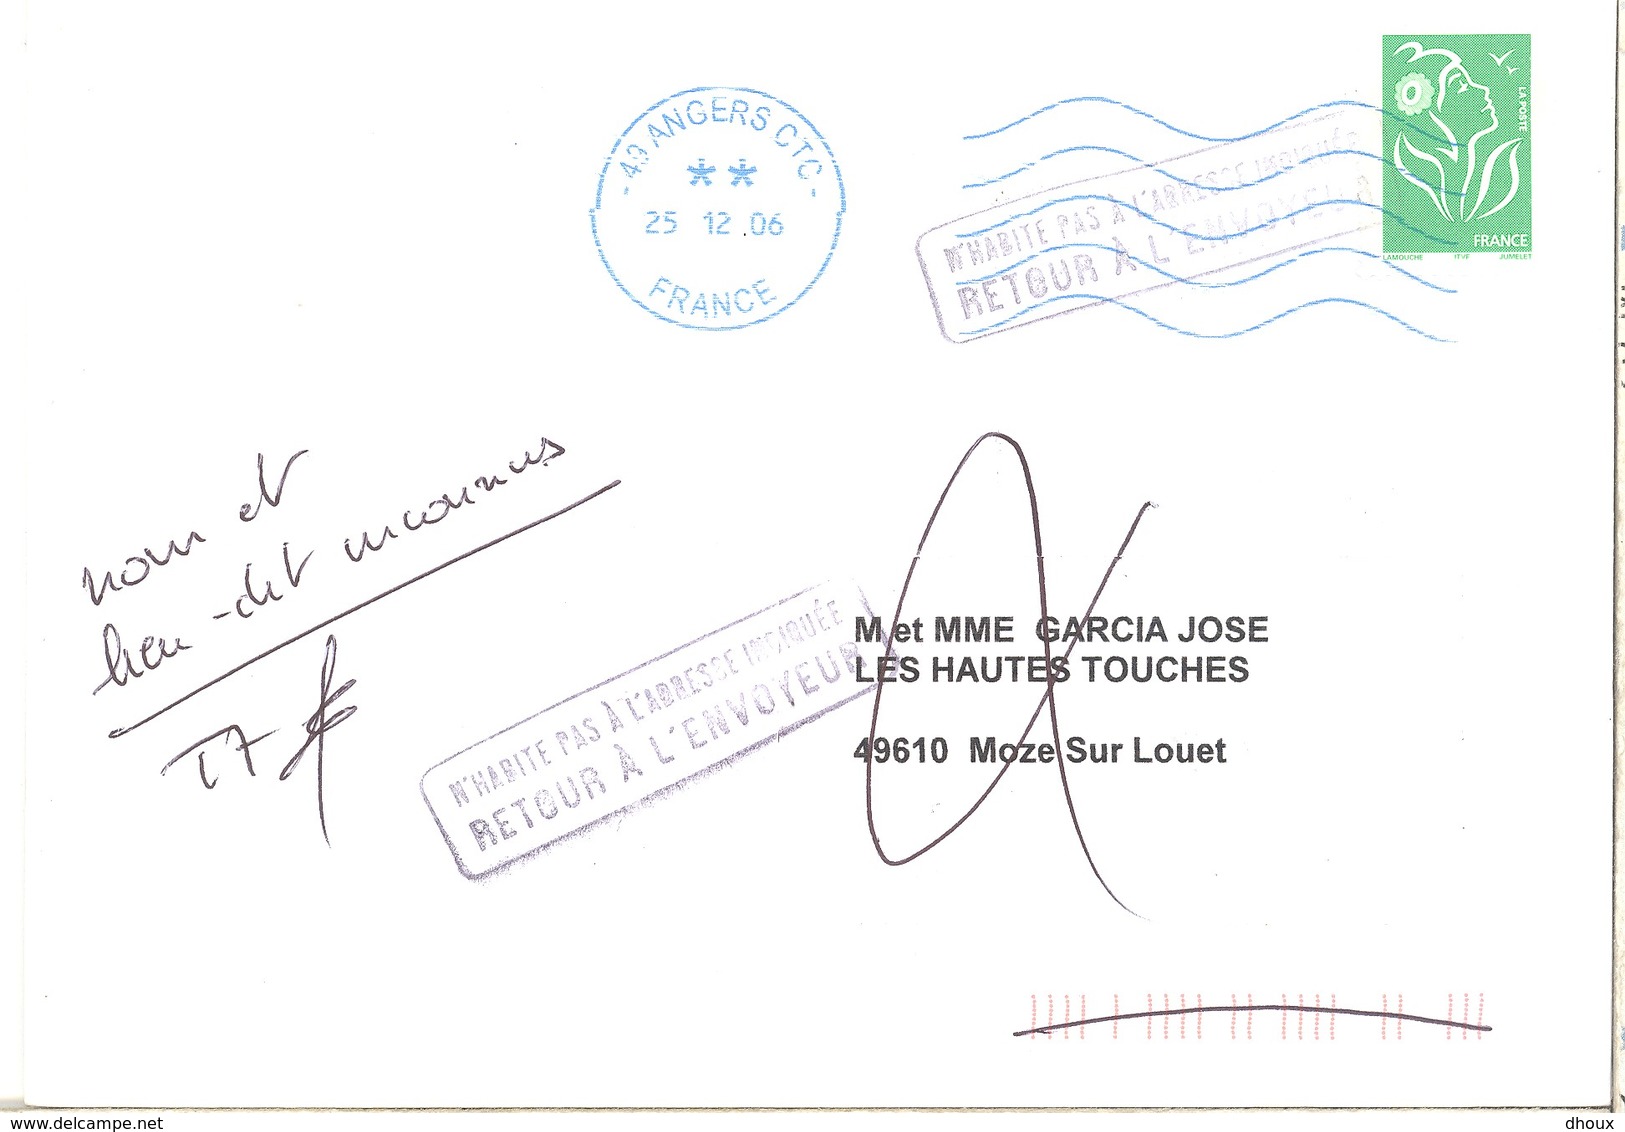 - 49 ANGERS CTC -
**
25 12 .06
FRANCE
N'HABITE PAS À L'ADRESSE INDIQUÉE
RETOUR À L'ENVOYEUR
LA POSTE
FRANCE
LAMOUCHE ITVF JUMELET
nom et
lieu-dit inconnus
T7
N'HABITE PAS À L'ADRESSE INDIQUÉE
RETOUR À L'ENVOYEUR
M et MME GARCIA JOSE
LES HAUTES TOUCHES
49610 Moze Sur Louet
www.delcampe.net
dhoux